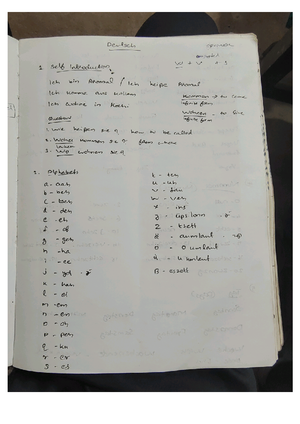 Deutsch
W + V + S
1. Self Introduction
Ich bin Anmol / Ich heiße Anmol
Ich komme aus
Ich wohne in
kommen - to come
infinite form
wohnen - to live
infinite form
Question
1. wie heißen sie ? how to be called
2. Woher kommen sie ? from where
3. Wo wohnen sie ?
2. Alphabets
a - aah
b - beh
c - tseh
d - deh
e - eh
f - ef
g - geh
h - ha
i - ee
j - yot
k - kah
l - el
m - em
n - en
o - oh
p - peh
q - ku
r - er
s - es
t - teh
u - uh
v - fau
w - veh
x - iks
y - üpsilon
z - tsett
ä - a umlaut
ö - o umlaut
ü - u umlaut
ß - eszett